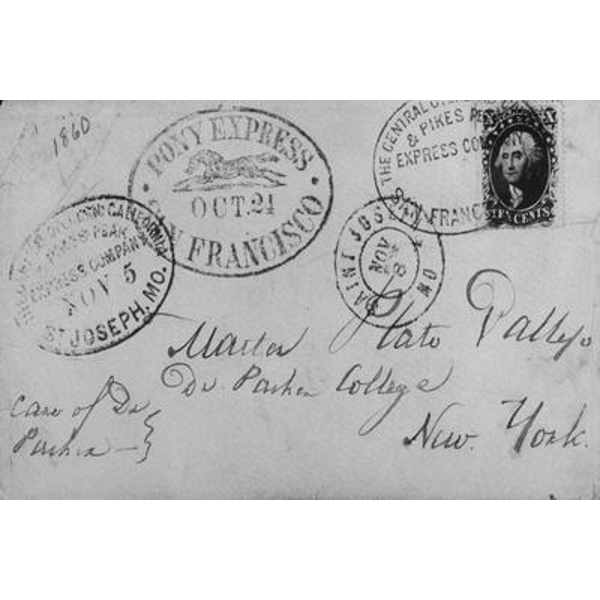 1860
PONY EXPRESS
OCT. 24
SAN FRANCISCO
THE CENTRAL
& PIKES
EXPRESS
SAN FRANC
X X
TEN CENTS.
CALIFORNIA
& PIKES PEAK
EXPRESS COMPANY
NOV 5
ST JOSEPH, MO.
SAINT JOSEPH
NOV
MO
Master Plato Vallejo
Dr Parker College
Care of Dr
Parker
New. York.